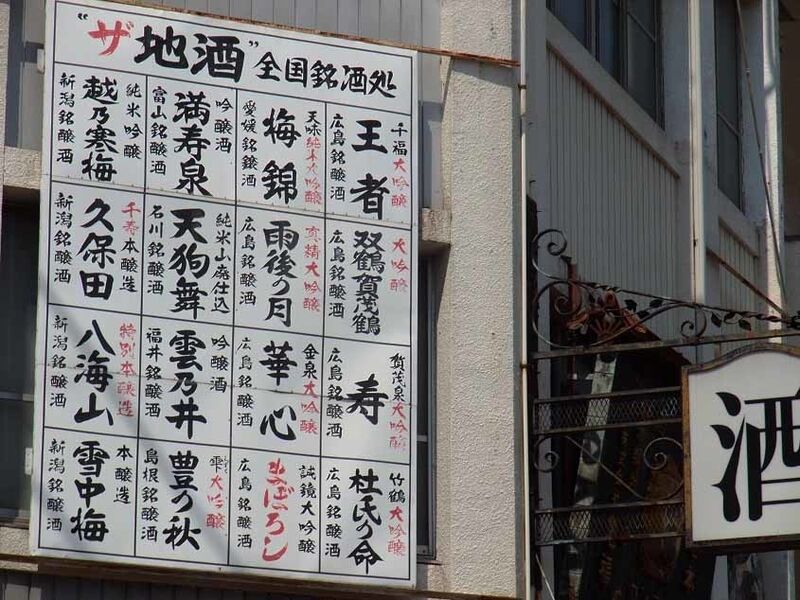 "ザ地酒"全国銘酒処
千福大吟醸
王者
広島銘醸酒
天味純米大吟醸
梅錦
愛媛銘醸酒
吟醸酒
満寿泉
富山銘醸酒
純米吟醸
越乃寒梅
新潟銘醸酒
大吟醸
双鶴賀茂鶴
広島銘醸酒
真精大吟醸
雨後の月
広島銘醸酒
純米山廃仕込
天狗舞
石川銘醸酒
千寿本醸造
久保田
新潟銘醸酒
賀茂泉大吟醸
寿
広島銘醸酒
金泉大吟醸
華心
広島銘醸酒
吟醸酒
雲乃井
福井銘醸酒
特別本醸造
八海山
新潟銘醸酒
竹鶴大吟醸
杜氏の命
広島銘醸酒
誠鏡大吟醸
まぼろし
広島銘醸酒
雫大吟醸
豊の秋
島根銘醸酒
本醸造
雪中梅
新潟銘醸酒
酒